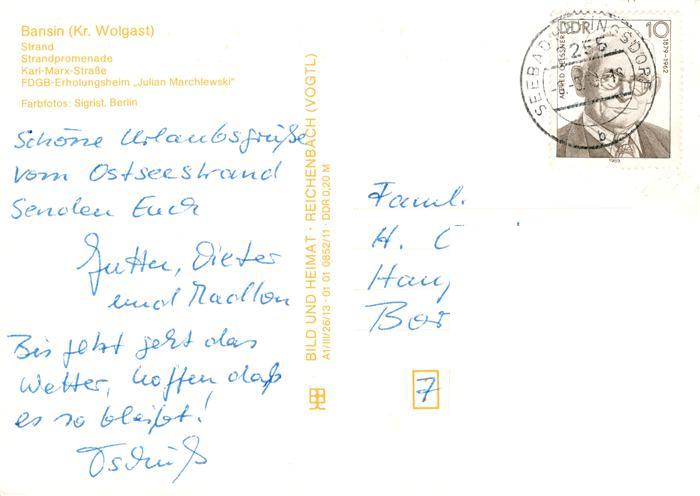 Bansin (Kr. Wolgast)
Strand
Strandpromenade
Karl-Marx-Straße
FDGB-Erholungsheim „Julian Marchlewski“
Farbfotos: Sigrist, Berlin
Schöne Urlaubsgrüße
vom Ostseestrand
senden Euch
Jutta, Dieter
und Madlon
Bis jetzt geht das
Wetter, hoffen daß
es so bleibt!
Tschüß
BILD UND HEIMAT · REICHENBACH (VOGTL)
A1/III/26/13 · 01 01 0852/11 · DDR 0,20 M
DDR 10
1879–1962
1989
SEEBAD
255
b
Famil.
H. C
Bor
7